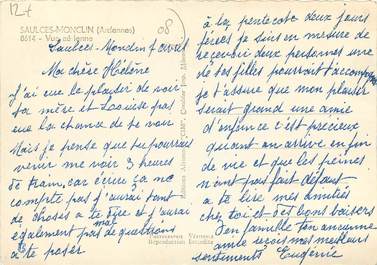 12+
08
SAULCES-MONCLIN (Ardennes)
8614 - Vue aérienne
Saulces-Monclin 7 avril
Ma chère Hélène
J'ai eu le plaisir de voir
ta mère et Louise pas
eu la chance de te voir
Mais je pense que tu pourrais
venir me voir 3 heures
de train, car écrire ça ne
compte pas j'aurai tant
de choses a te dire et j'aurai
également pas mal de questions
a te poser
Reproduction Interdite
à la pentecote deux jours
fériés je suis en mesure de
recevoir deux personnes une
de tes filles pourrait t'accompagner
je t'assure que mon plaisir
serait grand une amie
d'enfance c'est précieux
quand on arrive en fin
de vie et que les peines
n'ont pas fait défaut
a te lire mes amitiés
chez toi et des bons baisers
Ton ancienne
amie reçois mes meilleurs
sentiments Eugénie